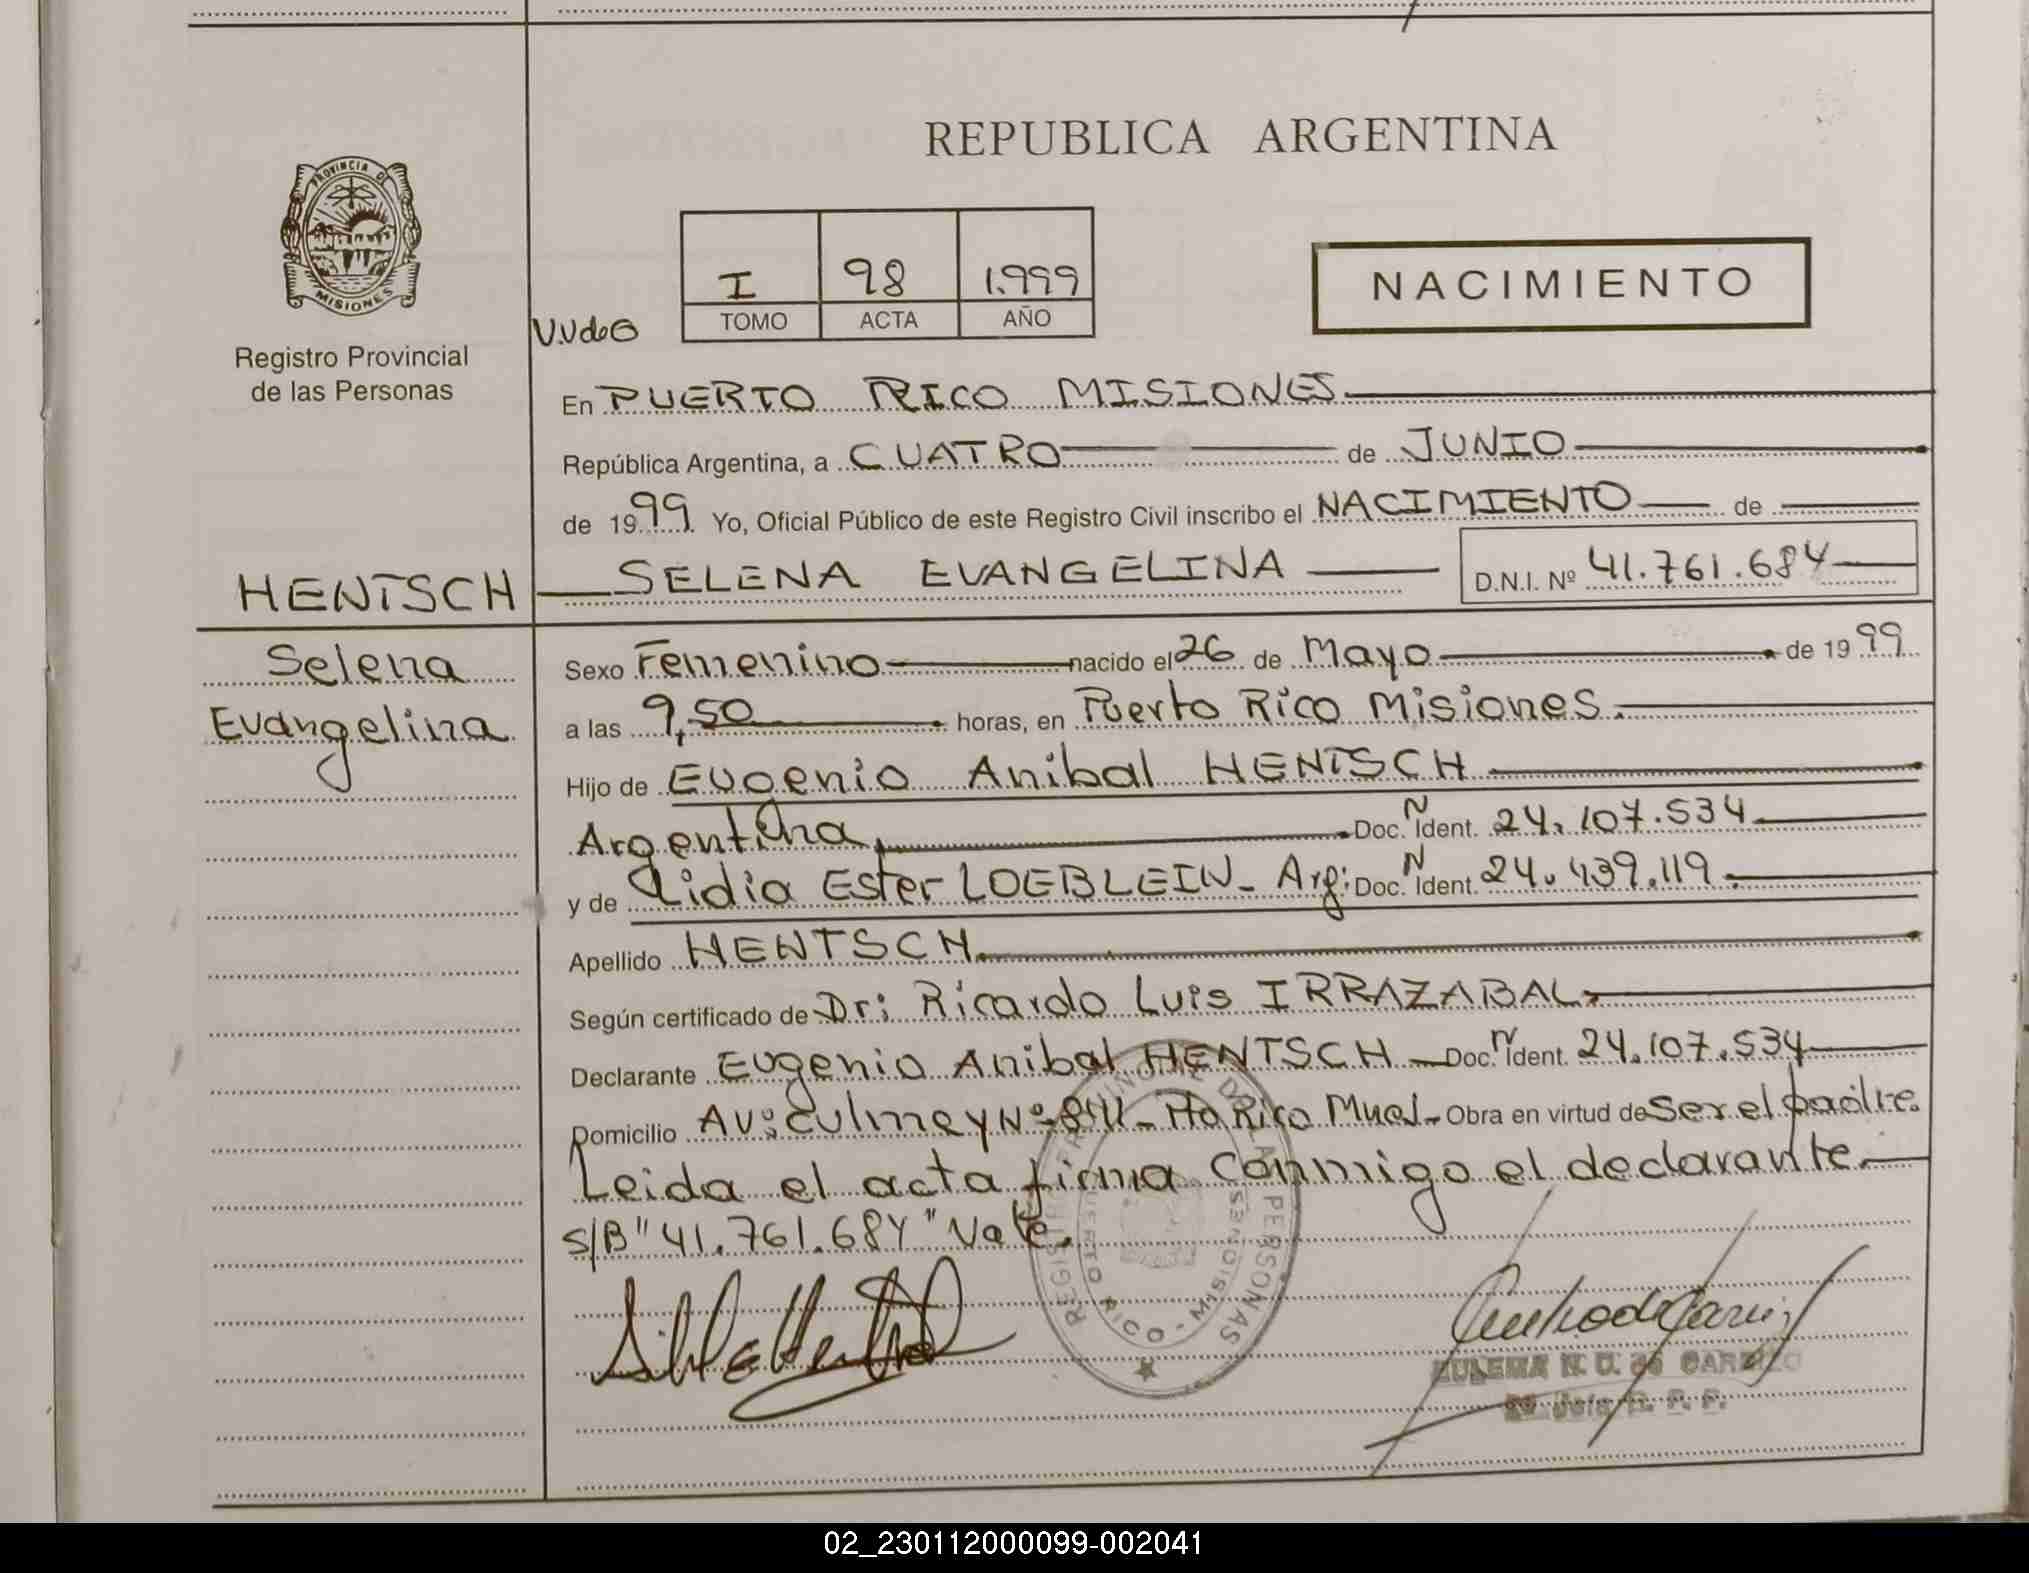 REPUBLICA ARGENTINA
PROVINCIA DE
MISIONES
Registro Provincial
de las Personas
I 98 1.999
TOMO ACTA AÑO
NACIMIENTO
En PUERTO RICO MISIONES
República Argentina, a CUATRO de JUNIO
de 1999. Yo, Oficial Público de este Registro Civil inscribo el NACIMIENTO de
HENTSCH SELENA EVANGELINA D.N.I. Nº 41.761.684
Selena
Evangelina
Sexo Femenino nacido el 26 de Mayo de 1999
a las 9,50 horas, en Puerto Rico Misiones.
Hijo de Eugenio Anibal HENTSCH
Argentina, Doc. N Ident. 24.107.534
y de Lidia Ester LOEBLEIN - Arg: Doc. N Ident. 24.439.119.
Apellido HENTSCH
Según certificado de Dr: Ricardo Luis IRRAZABAL
Declarante Eugenio Anibal HENTSCH - Doc. N Ident. 24.107.534
Domicilio Av: Culmey Nº Rico - Obra en virtud de Ser el padre.
Leida el acta firma conmigo el declarante.
S/B "41.761.684" Vale.
REGISTRO PROVINCIAL DE LAS PERSONAS
PUERTO RICO - MISIONES
ZULEMA N. U. de CARRIZO
Jefe R. P. P.
02_230112000099-002041